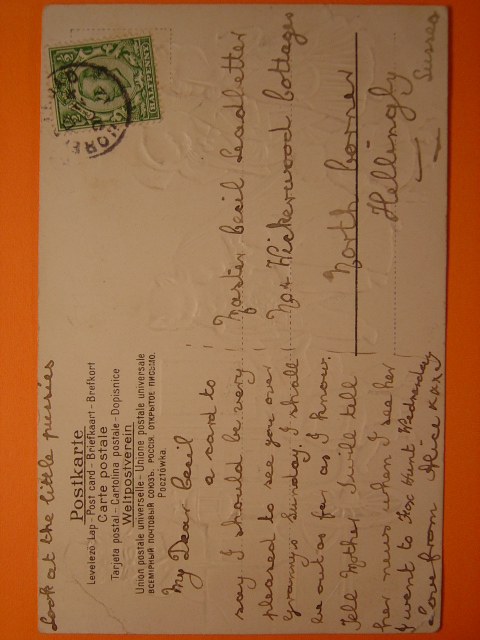 Look at the little pussies
Postkarte
Levelező-Lap - Post card - Briefkaart - Brefkort
Carte postale
Tarjeta postal - Cartolina postale - Dopisnice
Weltpostverein
Union postale universelle - Unione postale universale
ВСЕМІРНЫЙ ПОЧТОВЫЙ СОЮЗЪ. РОССІЯ. ОТКРЫТОЕ ПИСЬМО.
Pocztówka.
My Dear Cecil
a card to
say I should be very
pleased to see you over
Grannys Sunday. I shall
be out as far as I know.
Tell Mother I will tell
her news when I see her
I went to Fox Hunt Wednesday
Love from Alice xxx
Master Cecil Leadbetter
No 4 Wickerwood Cottages
North Corner
Hellingly
Sussex
HALFPENNY